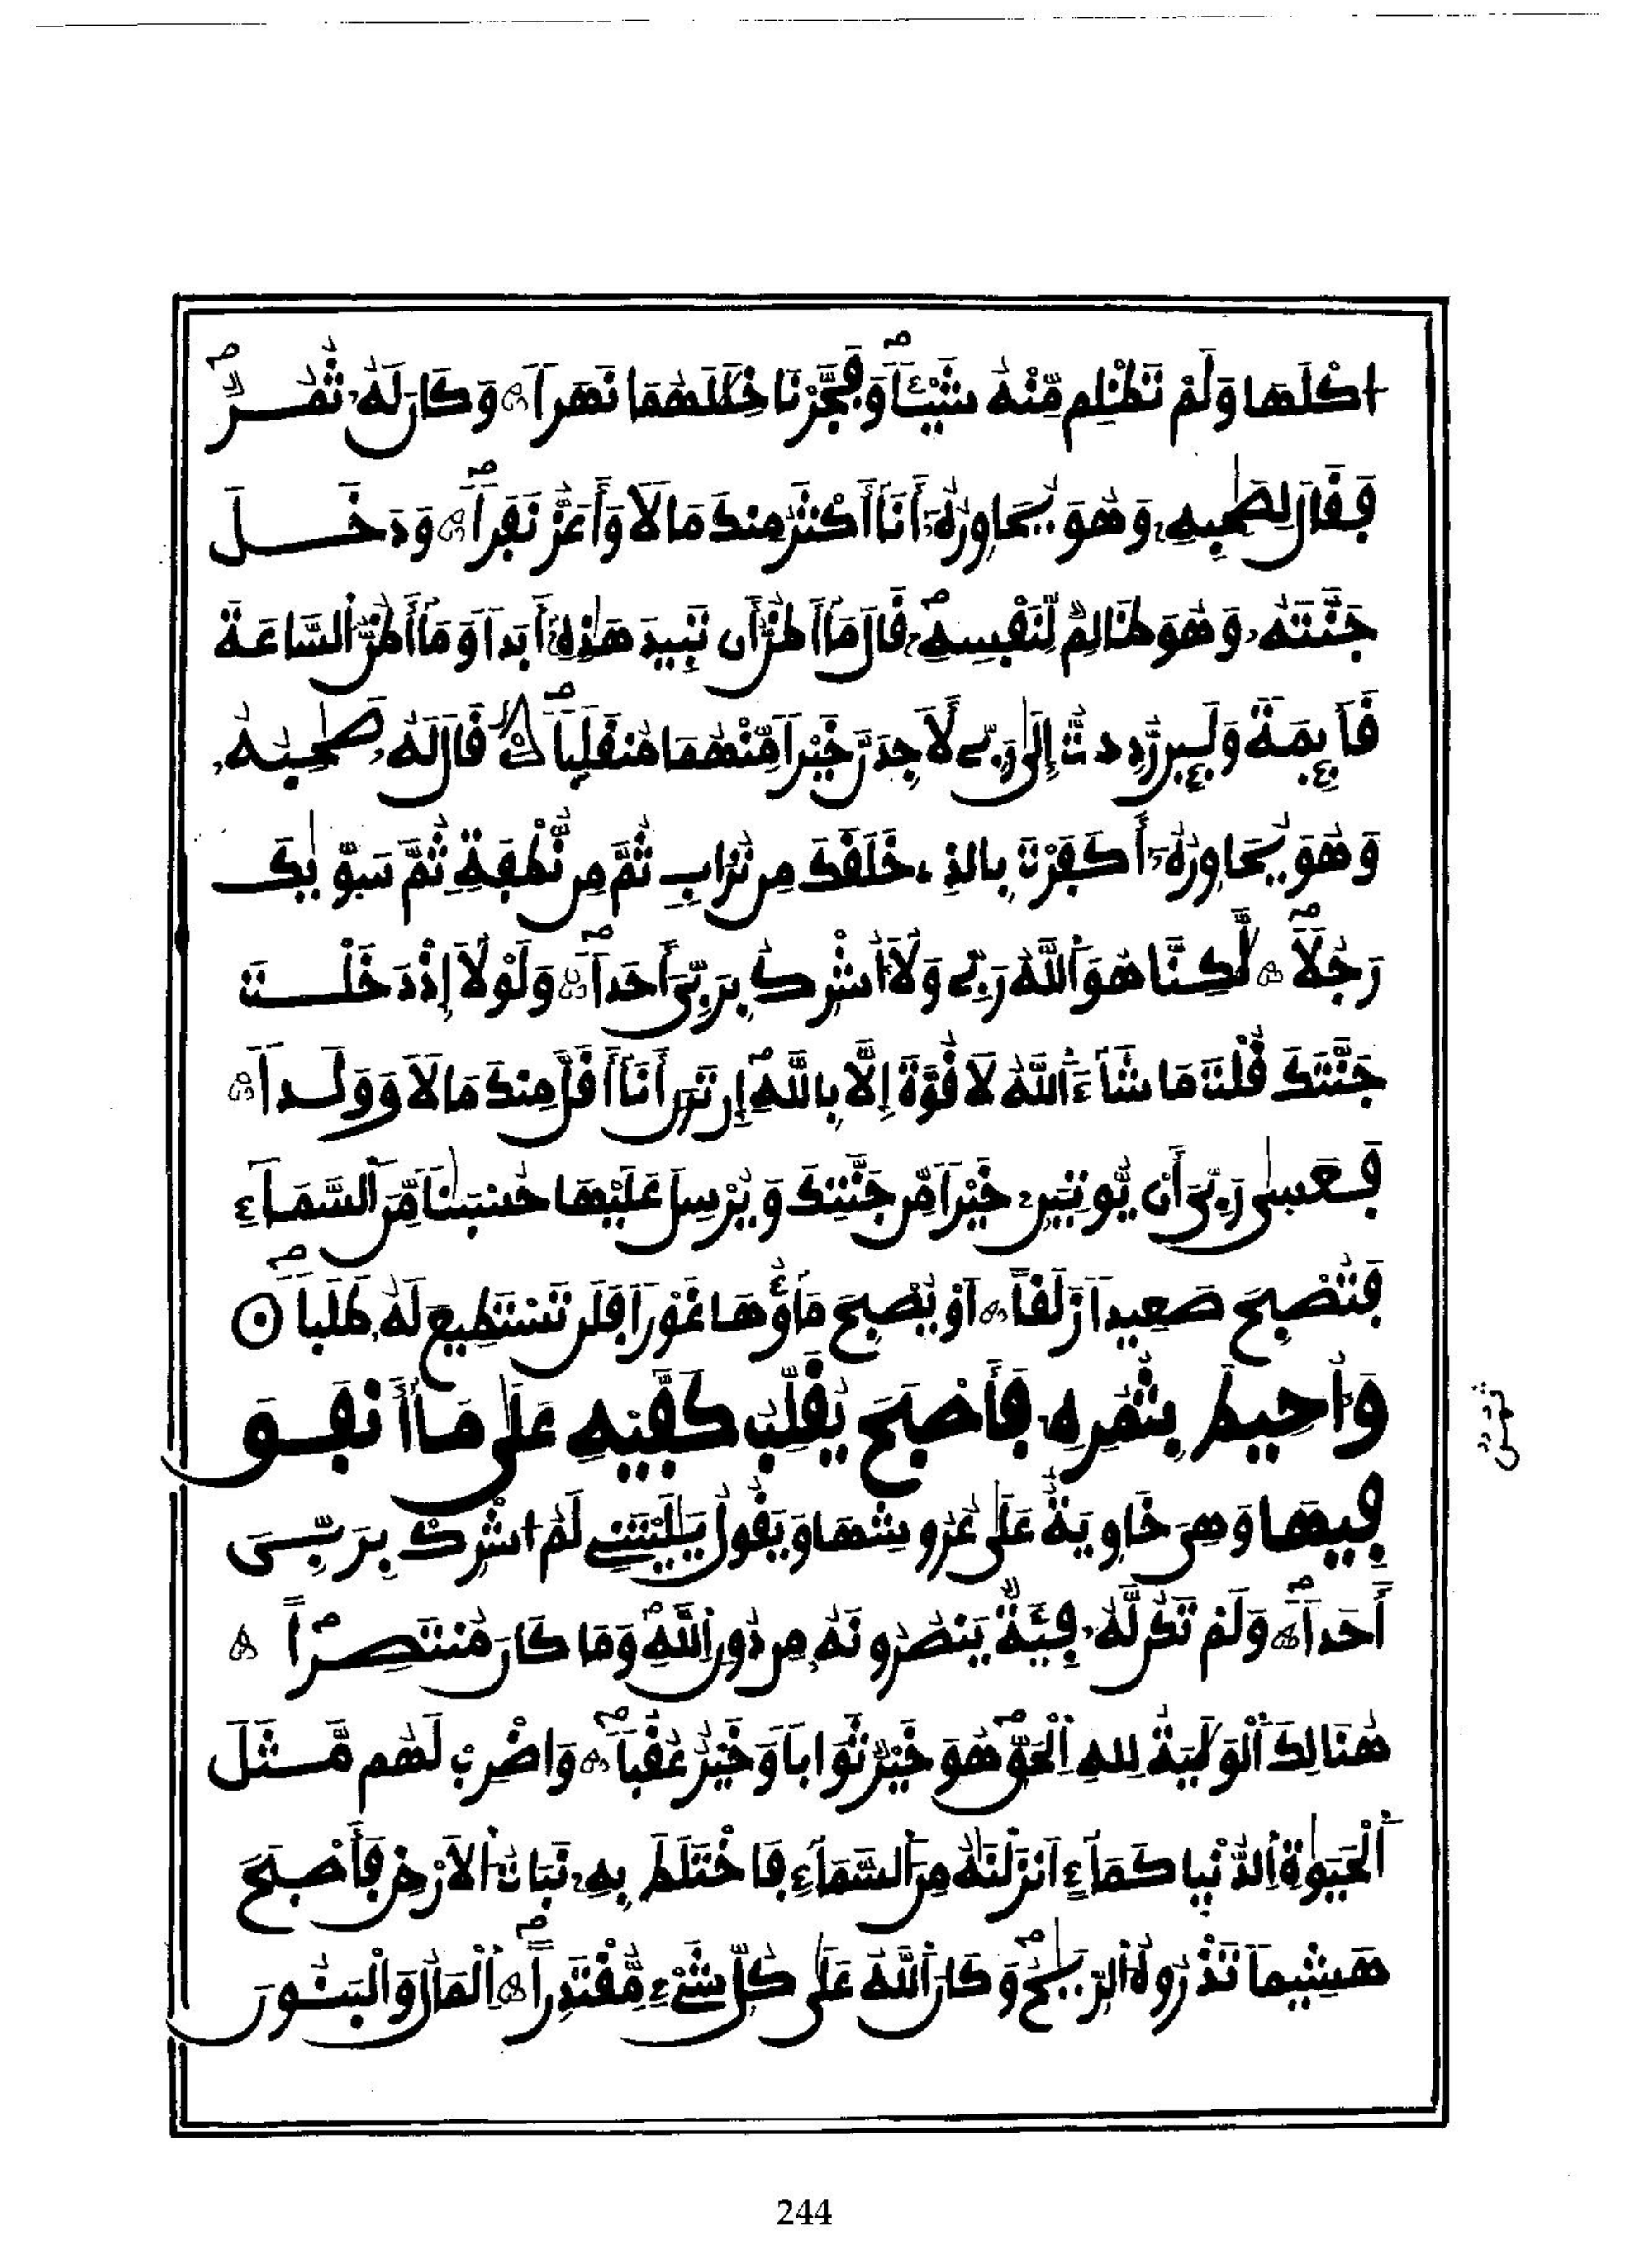 اُكْلَهَا وَلَمْ تَظْلِم مِّنْهُ شَيْـٔاً وَفَجَّرْنَا خِلَٰلَهُمَا نَهَراً وَكَانَ لَهُۥ ثُمُرٌ
فَقَالَ لِصَٰحِبِهِۦ وَهُوَ يُحَاوِرُهُۥٓ أَنَآ أَكْثَرُ مِنكَ مَالًا وَأَعَزُّ نَفَراً وَدَخَلَ
جَنَّتَهُۥ وَهُوَ ظَالِمٌ لِّنَفْسِهِۦ قَالَ مَآ أَظُنُّ أَن تَبِيدَ هَٰذِهِۦٓ أَبَداً وَمَآ أَظُنُّ السَّاعَةَ
قَآئِمَةً وَلَئِن رُّدِدتُّ إِلَىٰ رَبِّي لَأَجِدَنَّ خَيْراً مِّنْهُمَا مُنقَلَباً قَالَ لَهُۥ صَٰحِبُهُۥ
وَهُوَ يُحَاوِرُهُۥٓ أَكَفَرْتَ بِالذِے خَلَقَكَ مِن تُرَابٍ ثُمَّ مِن نُّطْفَةٍ ثُمَّ سَوّ۪ىٰكَ
رَجُلًا لَّٰكِنَّا هُوَ اَللَّهُ رَبِّے وَلَآ أُشْرِكُ بِرَبِّيَ أَحَداً وَلَوْلَآ إِذْ دَخَلْتَ
جَنَّتَكَ قُلْتَ مَا شَآءَ اَللَّهُ لَا قُوَّةَ إِلَّا بِاللَّهِ إِن تَرَنِ أَنَآ أَقَلَّ مِنكَ مَالًا وَوَلَداً
فَعَسَىٰ رَبِّيَ أَن يُّوتِيَنِۦ خَيْراً مِّن جَنَّتِكَ وَيُرْسِلَ عَلَيْهَا حُسْبَٰناً مِّنَ اَلسَّمَآءِ
فَتُصْبِحَ صَعِيداً زَلَقاً اَوْ يُصْبِحَ مَآؤُهَا غَوْراً فَلَن تَسْتَطِيعَ لَهُۥ طَلَباً
وَأُحِيطَ بِثُمُرِهِۦ فَأَصْبَحَ يُقَلِّبُ كَفَّيْهِ عَلَىٰ مَآ أَنفَقَ
فِيهَا وَهِيَ خَاوِيَةٌ عَلَىٰ عُرُوشِهَا وَيَقُولُ يَٰلَيْتَنِے لَمُ اُشْرِكْ بِرَبِّيَ
أَحَداً وَلَمْ تَكُن لَّهُۥ فِئَةٌ يَنصُرُونَهُۥ مِن دُونِ اِللَّهِ وَمَا كَانَ مُنتَصِراً
هُنَالِكَ اَلْوَلَٰيَةُ لِلهِ اِلْحَقِّ هُوَ خَيْرٌ ثَوَاباً وَخَيْرٌ عُقُباً وَاضْرِبْ لَهُم مَّثَلَ
اَلْحَيَوٰةِ اِلدُّنْيَا كَمَآءٍ اَنزَلْنَٰهُ مِنَ اَلسَّمَآءِ فَاخْتَلَطَ بِهِۦ نَبَاتُ اُلَارْضِ فَأَصْبَحَ
هَشِيماً تَذْرُوهُ اُلرِّيَٰحُ وَكَانَ اَللَّهُ عَلَىٰ كُلِّ شَےْءٍ مُّقْتَدِراً اِلْمَالُ وَالْبَنُونَ
ثمن
244